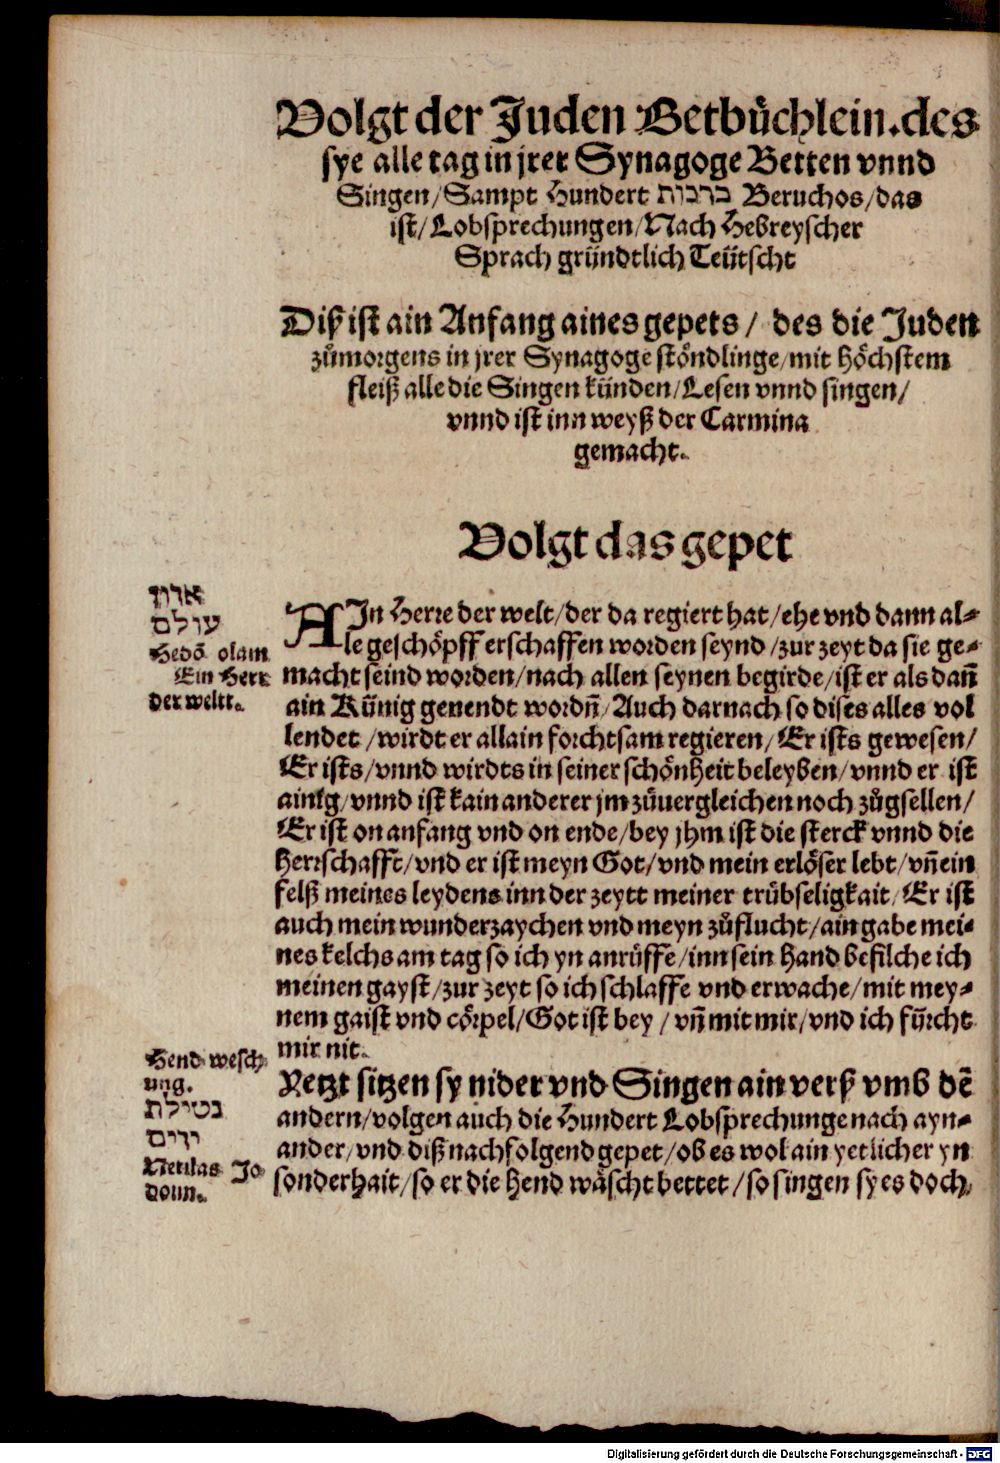 Volgt der Juden Betbůchlein. des
sye alle tag in jrer Synagoge Betten vnnd
Singen/Sampt Hundert ברכות Beruchos/das
ist/Lobsprechungen/Nach Hebreyscher
Sprach gründtlich Teütscht
Diß ist ain Anfang aines gepets/ des die Juden
zůmorgens in jrer Synagoge stöndlinge/mit höchstem
fleiß alle die Singen künden/Lesen vnnd singen/
vnnd ist inn weyß der Carmina
gemacht.
Volgt das gepet
אדון
עולם
Hedō olam
Ein Herr
der weltt.
AIn Herre der welt/der da regiert hat/ehe vnd dann al-
le geschöpff erschaffen worden seynd/zur zeyt da sie ge-
macht seind worden/nach allen seynen begirde/ist er als dañ
ain Künig genendt wordñ/Auch darnach so dises alles vol
lendet/wirdt er allain forchtsam regieren/Er ists gewesen/
Er ists/vnnd wirdts in seiner schönheit beleyben/vnnd er ist
ainig/vnnd ist kain anderer jm zůuergleichen noch zůgsellen/
Er ist on anfang vnd on ende/bey jhm ist die sterck vnnd die
herrschafft/vnd er ist meyn Got/vnd mein erlöser lebt/vñ ein
felß meines leydens inn der zeytt meiner trübseligkait/Er ist
auch mein wunderzaychen vnd meyn zůflucht/ain gabe mei-
nes kelchs am tag so ich yn anrüffe/inn sein hand befilche ich
meinen gayst/zur zeyt so ich schlaffe vnd erwache/mit mey-
nem gaist vnd cörpel/Got ist bey/vñ mit mir/vnd ich fürcht
mir nit.
Hend wesch
ung.
נטילת
ידים
Netilas Jo
doim.
Yetzt sitzen sy nider vnd Singen ain verß vmb dē
andern/volgen auch die Hundert Lobsprechunge nach ayn-
ander/vnd diß nachfolgend gepet/ob es wol ain yetlicher yn
sonderhait/so er die hend wäscht bettet/so singen sy es doch
Digitalisierung gefördert durch die Deutsche Forschungsgemeinschaft - DFG